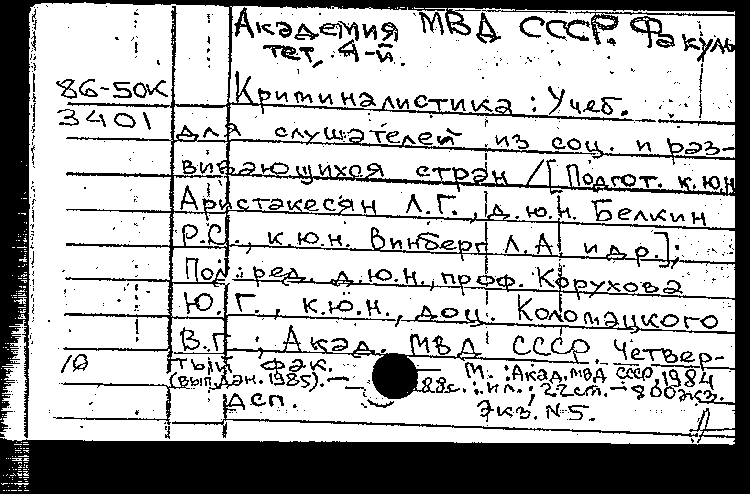 Академия МВД СССР. Факуль
тет, 4-й.
86-50к Криминалистика : Учеб.
3401 для слушателей из соц. и раз-
вивающихся стран /[Подгот. к.ю.н
Аристакесян Л.Г., д.ю.н. Белкин
Р.С., к.ю.н. Винберг Л.А и др.];
Под ред. д.ю.н., проф. Корухова
Ю.Г., к.ю.н., доц. Коломацкого
В.Г ; Акад. МВД СССР. Четвер-
тый фак. М. : Акад. МВД СССР, 1984
(вып. дан. 1985). — 88с. : ил. ; 22 см. — 800 экз.
ДСП. Экз. N 5.